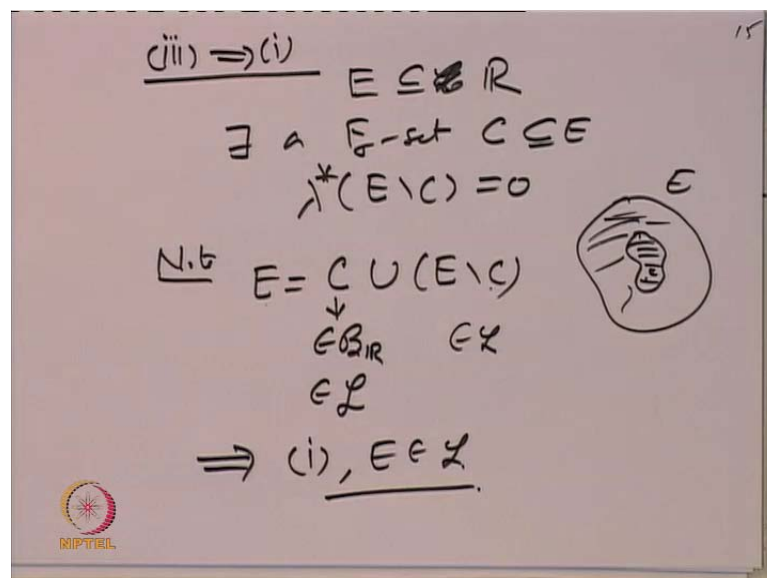 15
(iii) ⟹ (i)
E ⊆ ℝ
∃ a F-set C ⊆ E
λ*(E \ C) = 0
E
N.t E = C ∪ (E \ C)
↓
∈ 𝓑_ℝ ∈ 𝓛
∈ 𝓛
⟹ (i), E ∈ 𝓛
NPTEL